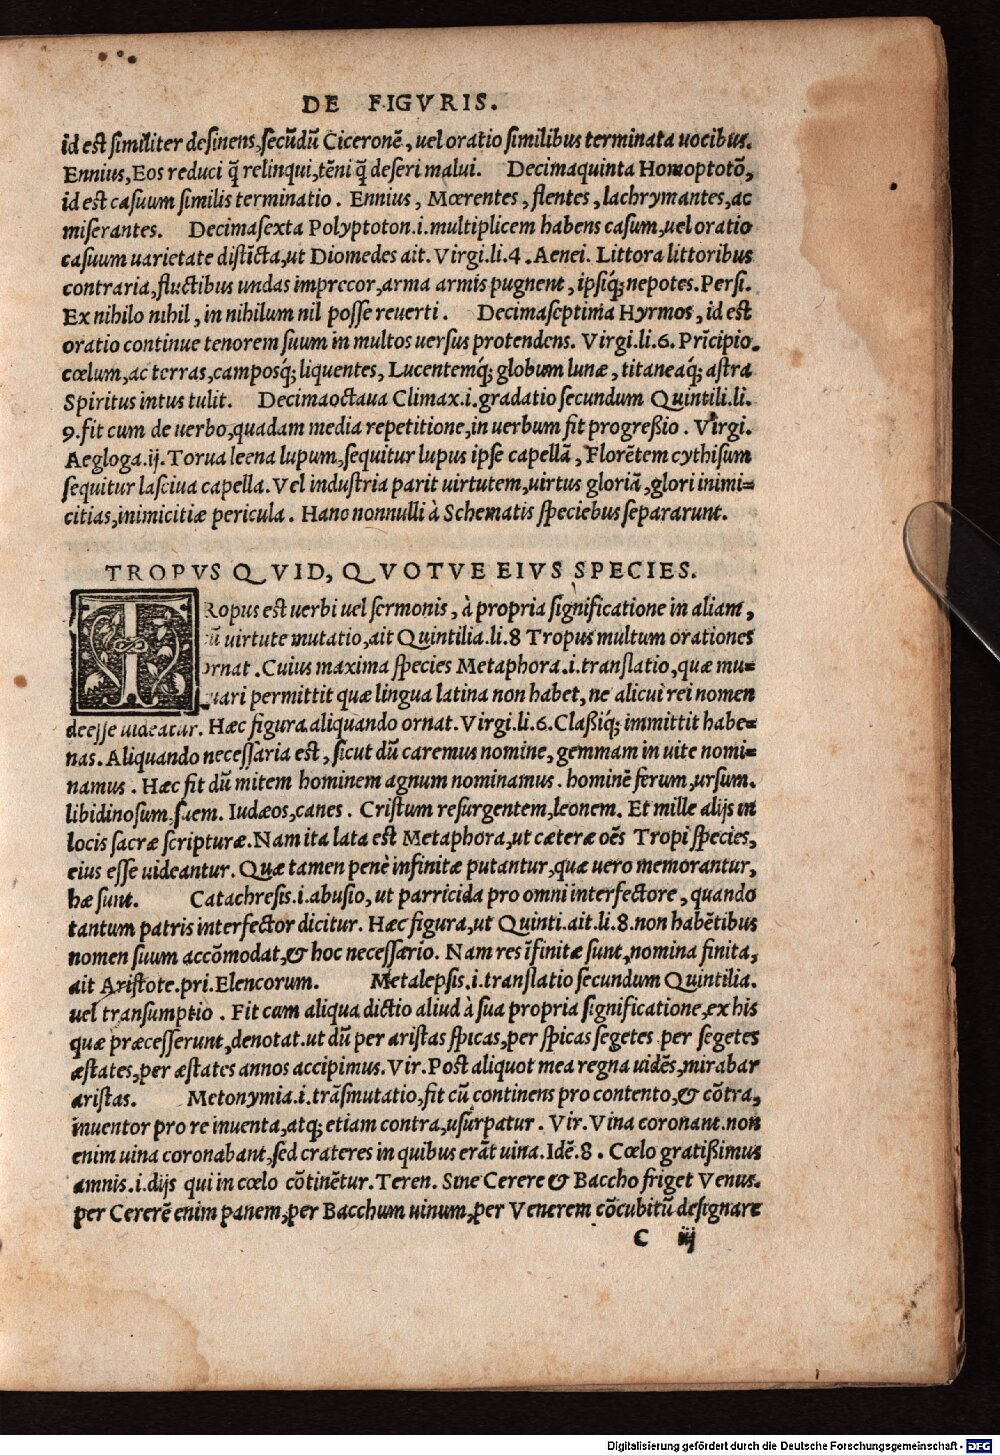 DE FIGVRIS.
id est similiter desinens, secūdū Ciceronē, uel oratio similibus terminata uocibus.
Ennius, Eos reduci q̄ relinqui, tēni q̄ deseri malui. Decimaquinta Homoptotō,
id est casuum similis terminatio. Ennius, Mœrentes, flentes, lachrymantes, ac
miserantes. Decimasexta Polyptoton.i.multiplicem habens casum, uel oratio
casuum uarietate distīcta, ut Diomedes ait. Virgi.li.4. Aenei. Littora littoribus
contraria, fluctibus undas imprecor, arma armis pugnent, ipsiq́; nepotes. Persi.
Ex nihilo nihil, in nihilum nil posse reuerti. Decimaseptima Hyrmos, id est
oratio continue tenorem suum in multos uersus protendens. Virgi.li.6. Prīcipio.
cœlum, ac terras, camposq́; liquentes, Lucentemq́; globum lunæ, titaneaq́; astra
Spiritus intus tulit. Decimaoctaua Climax.i.gradatio secundum Quintili.li.
9.fit cum de uerbo, quadam media repetitione, in uerbum fit progreßio. Virgi.
Aegloga.ij. Torua leena lupum, sequitur lupus ipse capellā, Florētem cythisum
sequitur lasciua capella. Vel industria parit uirtutem, uirtus gloriā, glori inimi=
citias, inimicitiæ pericula. Hanc nonnulli à Schematis speciebus separarunt.
TROPVS QVID, QVOTVE EIVS SPECIES.
TRopus est uerbi uel sermonis, à propria significatione in aliam,
cū uirtute mutatio, ait Quintilia.li.8 Tropus multum orationes
ornat. Cuius maxima species Metaphora.i.translatio, quæ mu=
tuari permittit quæ lingua latina non habet, ne alicui rei nomen
deesse uideatur. Hæc figura aliquando ornat. Virgi.li.6. Claßiq́; immittit habe=
nas. Aliquando necessaria est, sicut dū caremus nomine, gemmam in uite nomi=
namus. Hæc fit dū mitem hominem agnum nominamus. hominē ferum, ursum.
libidinosum, suem. Iudæos, canes. Cristum resurgentem, leonem. Et mille alijs in
locis sacræ scripturæ. Nam ita lata est Metaphora, ut cæteræ oēs Tropi species,
eius esse uideantur. Quæ tamen penè infinitæ putantur, quæ uero memorantur,
hæ sunt. Catachresis.i.abusio, ut parricida pro omni interfectore, quando
tantum patris interfector dicitur. Hæc figura, ut Quinti.ait.li.8.non habētibus
nomen suum accōmodat, & hoc necessario. Nam res īfinitæ sunt, nomina finita,
ait Aristote.pri.Elencorum. Metalepsis.i.translatio secundum Quintilia.
uel transumptio. Fit cum aliqua dictio aliud à sua propria significatione, ex his
quæ præcesserunt, denotat. ut dū per aristas spicas, per spicas segetes per segetes
æstates, per æstates annos accipimus. Vir. Post aliquot mea regna uidēs, mirabar
aristas. Metonymia.i.trāsmutatio, fit cū continens pro contento, & cōtra,
inuentor pro re inuenta, atq; etiam contra, usurpatur. Vir. Vina coronant.non
enim uina coronabant, sed crateres in quibus erāt uina. Idē.8. Cœlo gratißimus
amnis.i.dijs qui in cœlo cōtinētur. Teren. Sine Cerere & Baccho friget Venus.
per Cererē enim panem, per Bacchum uinum, per Venerem cōcubitū designare
C iij
Digitalisierung gefördert durch die Deutsche Forschungsgemeinschaft - DFG